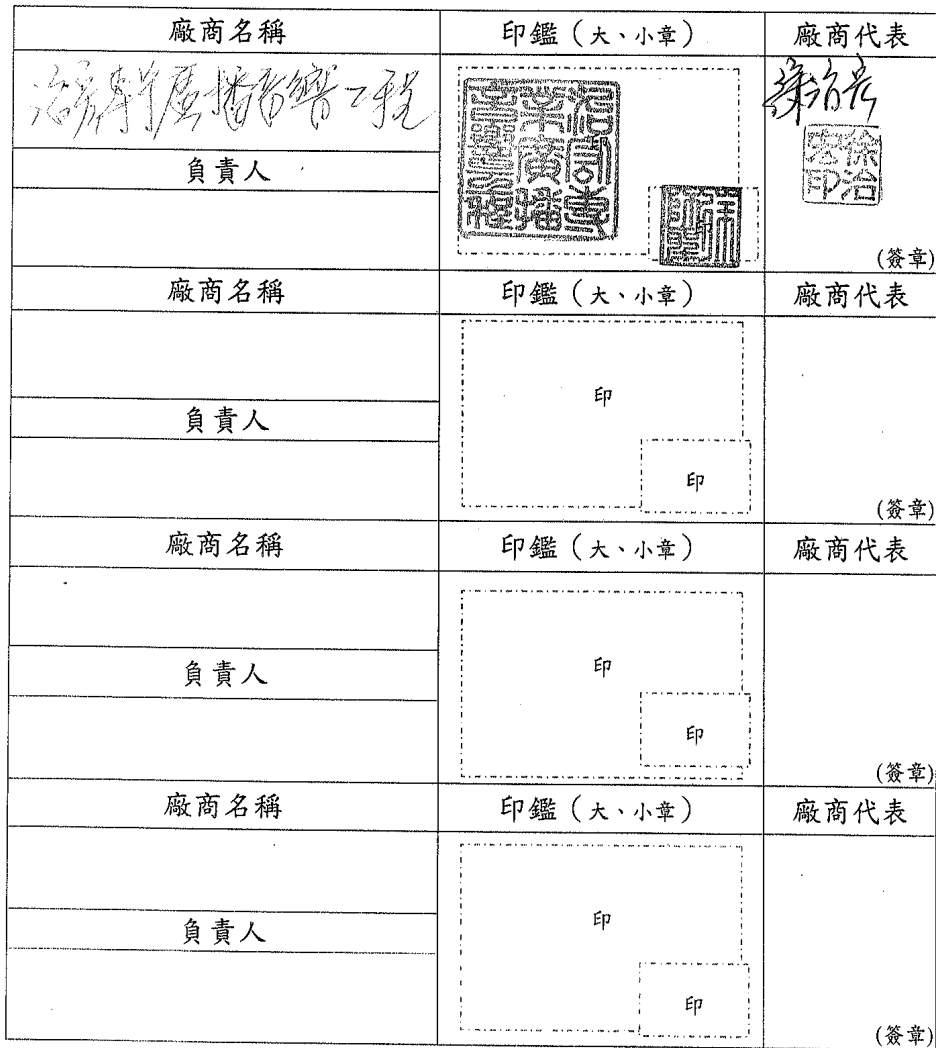 廠商名稱 印鑑（大、小章） 廠商代表
廣播音響工程
負責人
徐治宏印
(簽章)
廠商名稱 印鑑（大、小章） 廠商代表
印
負責人
印
(簽章)
廠商名稱 印鑑（大、小章） 廠商代表
印
負責人
印
(簽章)
廠商名稱 印鑑（大、小章） 廠商代表
印
負責人
印
(簽章)